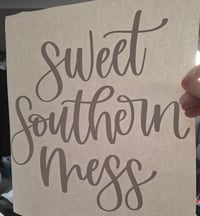 sweet
Southern
mess